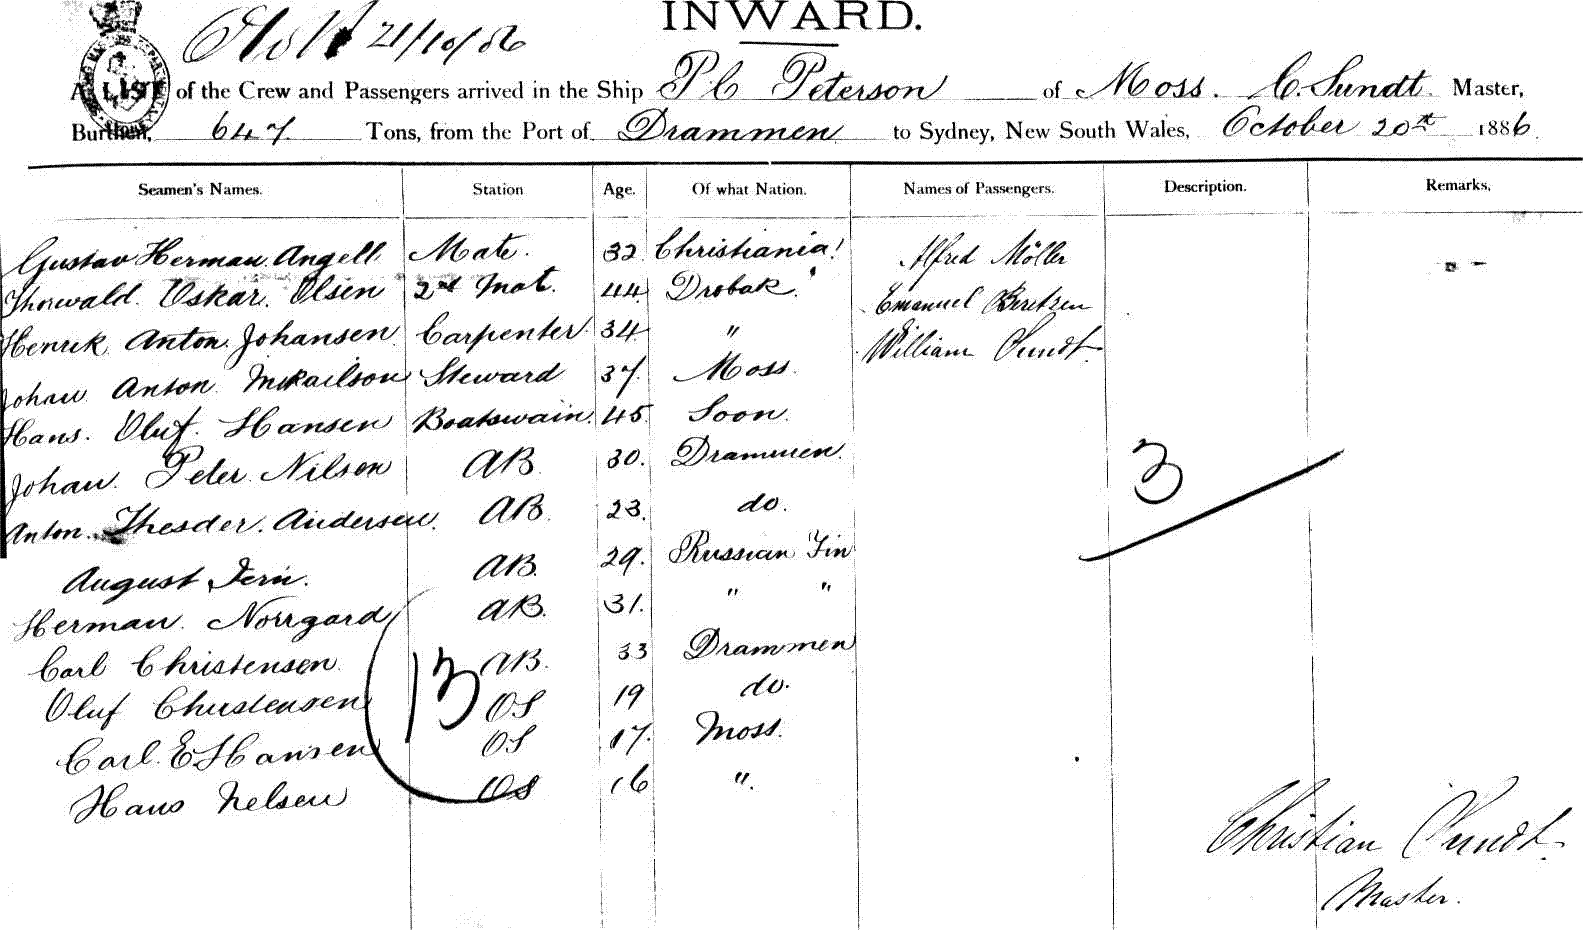 INWARD.
21/10/86
A LIST of the Crew and Passengers arrived in the Ship P C Peterson of Moss. C. Sundt. Master,
Burthen, 647 Tons, from the Port of Drammen to Sydney, New South Wales, October 20th 1886.
Seamen's Names. Station Age. Of what Nation. Names of Passengers. Description. Remarks.
Gustav Herman Angell Mate. 32 Christiania! Alfred Möller
Thorwald. Oskar. Olsen 2nd Mat. 44 Drobak. Emanuel
Henrik Anton Johansen Carpenter 34 " William Sundt.
Johan Anton Mikailson Steward 37. Moss.
Hans. Oluf. Hansen Boatswain. 45. Soon.
Johan. Peter. Nilsen AB. 30. Drammen.
Anton. Thesder. Andersen. AB. 23. do. 3
August AB. 29. Russian Fin
Herman. Norrgard AB. 31. " "
Carl Christensen. AB. 33 Drammen
Oluf Christensen OS 19 do.
13
Carl. E Hansen OS 17. Moss.
Hans Nelsen OS 16 ".
Christian Sundt.
Master.